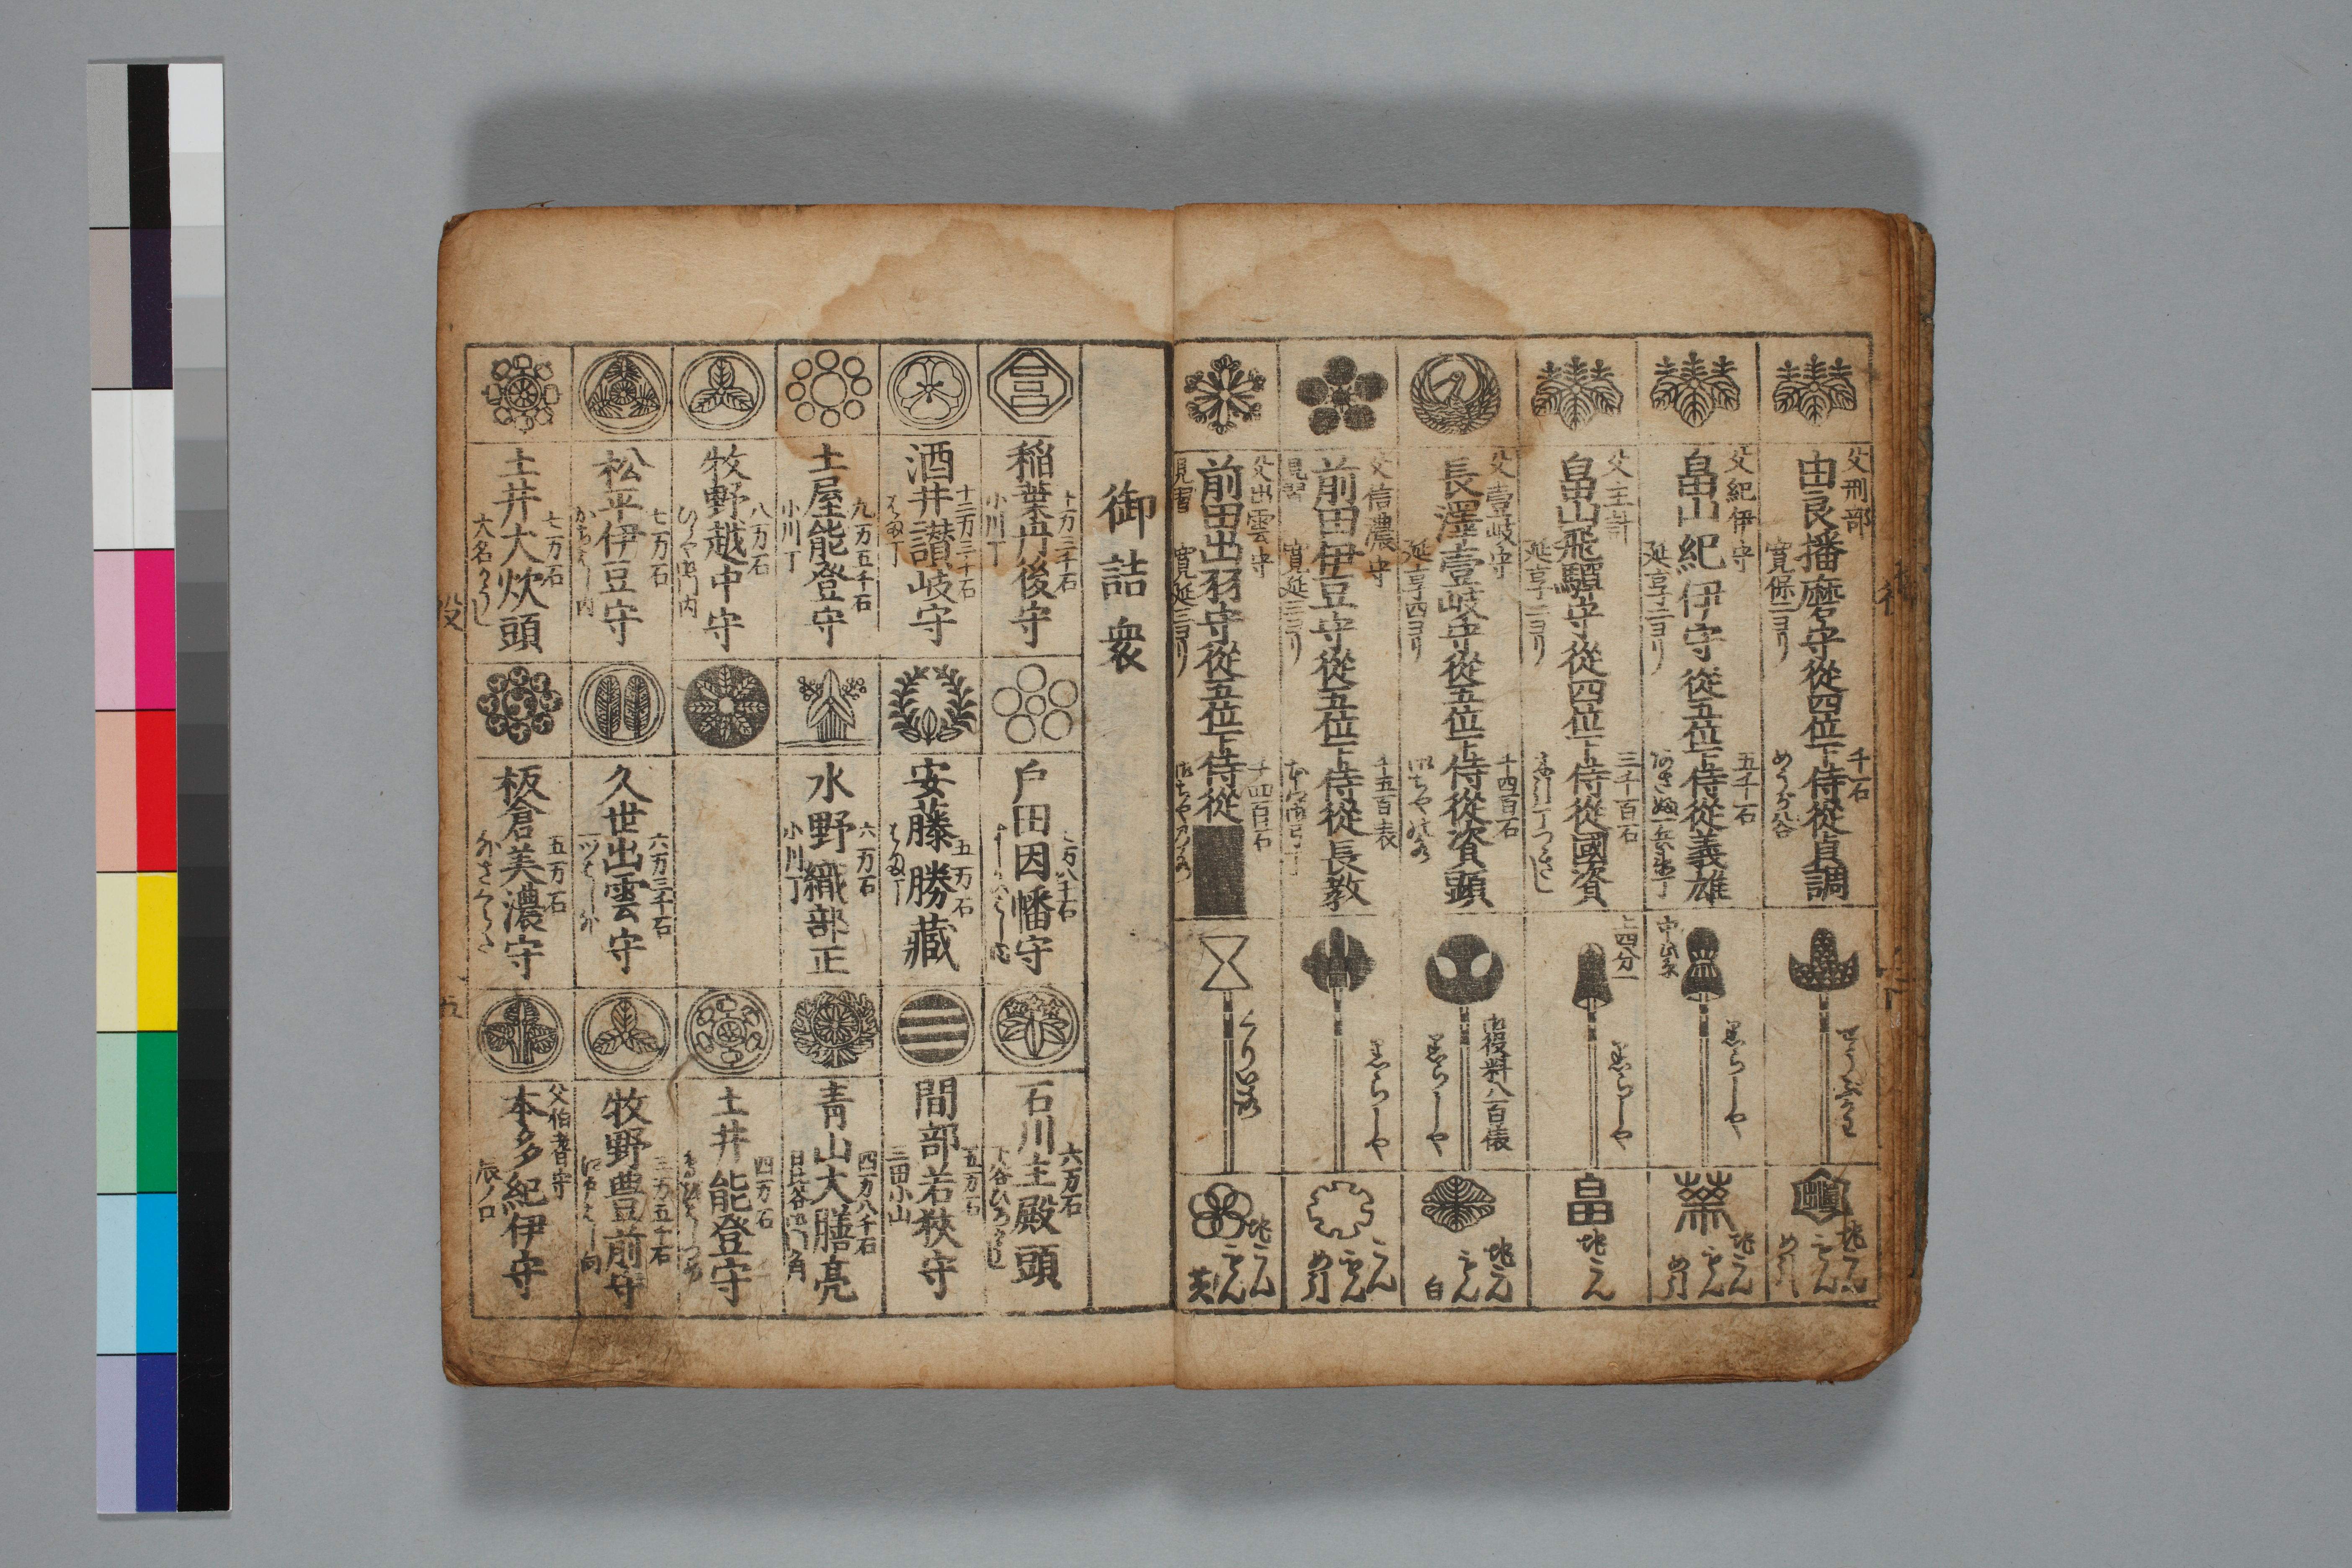 父刑部
由良播磨守從四位下侍從貞調
寛保二ヨリ
千石
父紀伊守
畠山紀伊守從五位下侍從義雄
延享二ヨリ
五千石
中紫
父主計
畠山飛驒守從四位下侍從國資
延享二ヨリ
三千百石
上四分一
畠
父壹岐守
長澤壹岐守從五位下侍從資顕
延享四ヨリ
千四百石
御役料八百俵
白
父信濃守
前田伊豆守從五位下侍從長敦
見習
寛延三ヨリ
千五百表
父出雲守
前田出羽守從五位下侍從
見習
寛延三ヨリ
千四百石
御詰衆
十万三千石
稲葉丹後守
小川丁
戸田因幡守
六万石
石川主殿頭
十二万三千石
酒井讃岐守
五万石
安藤勝藏
五万石
間部若狹守
三田小山
九万五千石
土屋能登守
小川丁
六万石
水野織部正
小川丁
四万八千石
青山大膳亮
日比谷御門角
八万石
牧野越中守
四万石
土井能登守
七万石
松平伊豆守
六万三千石
久世出雲守
三万五千石
牧野豊前守
七万石
土井大炊頭
五万石
板倉美濃守
父伯耆守
本多紀伊守
辰ノ口